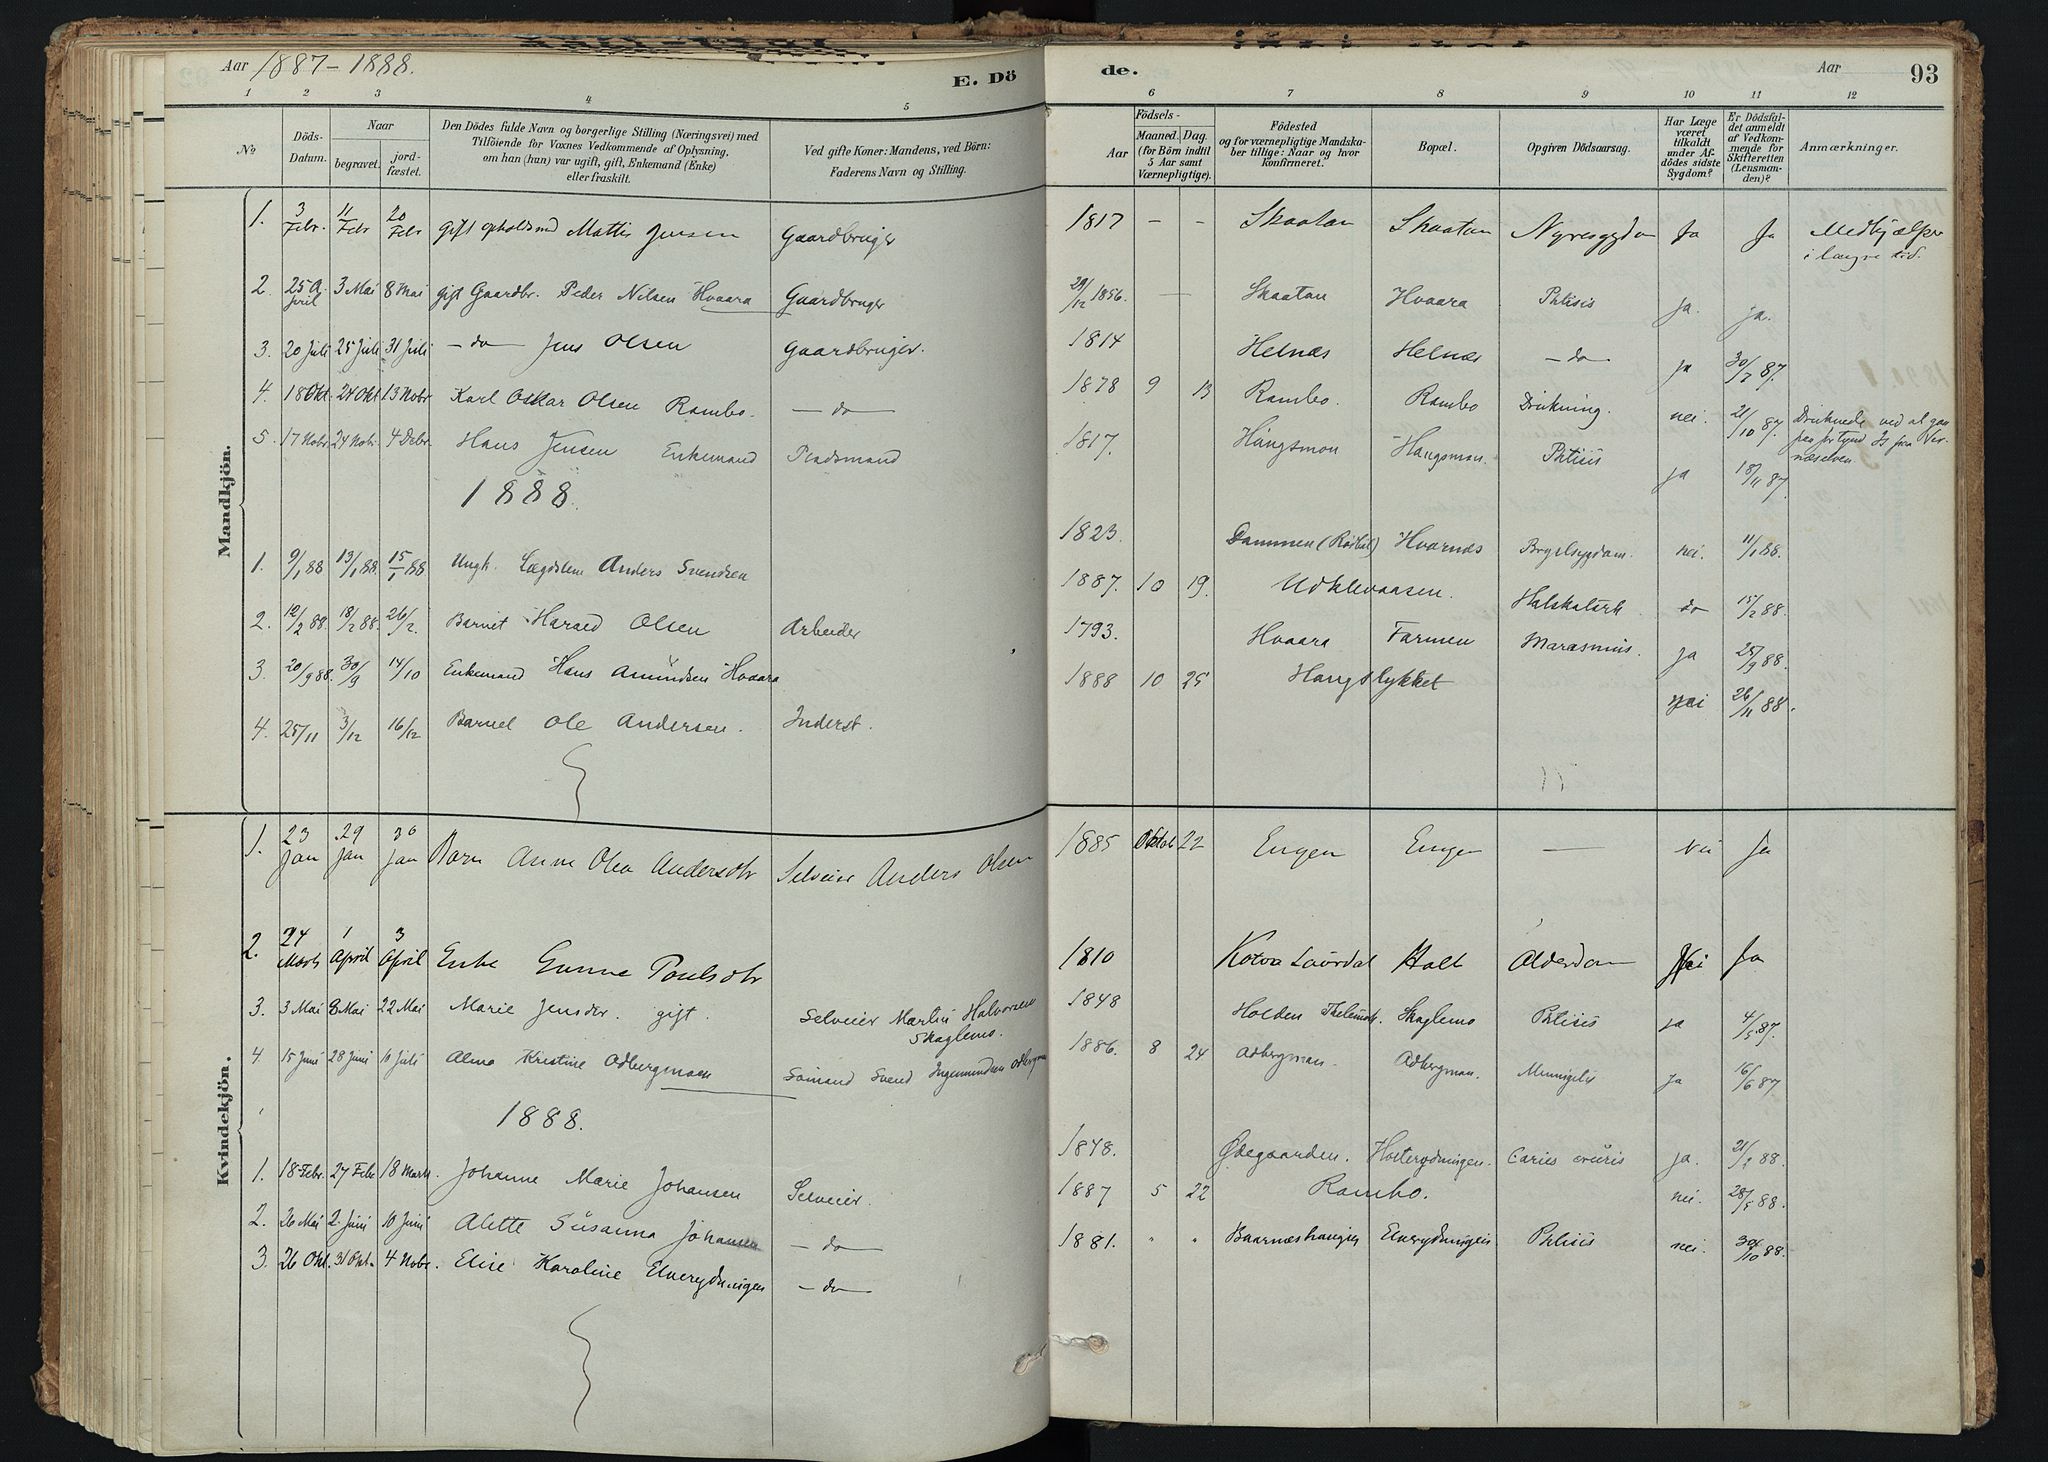 Aar 1887-1888. E. Dö
de. Aar 93
1 2 3 4 5
6 7 8 9 10 11 12
No
Döds-
Datum.
Naar
begravet.
jord-
fæstet.
Den Dödes fulde Navn og borgerlige Stilling (Næringsvei) med
Tilföiende for Voxnes Vedkommende af Oplysning,
om han (hun) var ugift, gift, Enkemand (Enke)
eller fraskilt.
Ved gifte Koner: Mandens, ved Börn:
Faderens Navn og Stilling.
Födsels-
Aar
Maaned. Dag.
(for Börn indtil
5 Aar samt
Værnepligtige).
Födested
og for værnepligtige Mandska-
ber tillige: Naar og hvor
konfirmeret.
Bopæl.
Opgiven Dödsaarsag.
Har Læge
været
tilkaldt
under Af-
dödes sidste
Sygdom?
Er Dödsfal-
det anmeldt
af Vedkom-
mende for
Skifteretten
(Lensman-
den)?
Anmærkninger.
Mandkjön.
1. 3 Febr. 11 Febr 20 Febr Gift Mattis Jensen Gaardbruger 1817 - - Skaatan Skaatan Ja Ja Medhjælper
i længre tid.
2. 25 April 3 Mai 8 Mai Gift Gaardbr. Peder Nilsen Hvaara Gaardbruger 29/12 1856. — Skaatan Hvaara Phtisis Ja. ja.
3. 20 Juli 25 Juli 31 Juli - do - Jens Olsen Gaardbruger. 1814 Helnæs Helnæs - do - ja 30/7 87.
4. 18 Okt. 24 Okt 13 Nobr Karl Oskar Olsen Rambo. - do - 1878 9 13 Rambo. Rambo Drukning. nei. 21/10 87. Druknede ved at gaa
paa for tynd Is paa
5. 17 Nobr. 24 Nobr. 4 Debr. Hans Jensen Enkemand Pladsmand 1817. Haugsmon Haugsmon. Phtisis ja 18/11 87.
1888.
1. 9/1 88 13/1 88. 15/1 88 Ungk. Lægdslem Anders Svendsen 1823. Dammen Hvarnes Brystsygdom. nei. 11/1 88.
2. 12/2 88. 18/2 88. 26/2. Barnet Harald Olsen Arbeider 1887. 10 19. Udklevaasen. Halskatarh. do 15/2 88.
3 20/9 88. 30/9 14/10 Enkemand Hans Amundsen Hvaara 1793. Hvaara Farmen Marasmus. ja 25/9 88.
4. 25/11 3/12 16/12 Barnet Ole Andersen. Inderst. 1888 10 25 Haugslykket nei 26/11 88.
Kvindekjön.
1. 23 Jan 29 Jan 30 Jan Barn Anne Olea Andersdtr Selveier Anders Olsen 1885 Oktob 22 Engen Engen — Nei Ja
2. 24 Marts 1 April 3 April Enke Gunne Poulsdtr 1810 Laurdal Holt Alderdom Nei Ja
3. 3 Mai 8 Mai 22 Mai Marie Jensdtr. gift. Selveier Martin Halvorsen
Skaglemo. 1848 Holden Thelemk. Skaglemo Phtisis ja 4/5 87.
4 15 Juni 28 Juni 10 Juli Alma Kristine Odbergmoen Sömand Svend Ingemundsen 1886. 8 24 Odbergmoen. Odbergmoen. ja 16/6 87.
1888.
1. 18 Febr. 27 Febr 18 Marts. Johanne Marie Johansen Selveier. 1848. Ødegaarden. Caries cruris ja. 21/2 88.
2. 26 Mai 2. Juni 10 Juni Alette Susanna Johansen - do - 1887 5 22 Rambo. nei. 28/5 88.
3. 26 Okt. 31 Okt. 4 Nobr. Elise Karoline Elverydningen - do - 1881. " " Elverydningen Phtisis nei. 30/10 88.